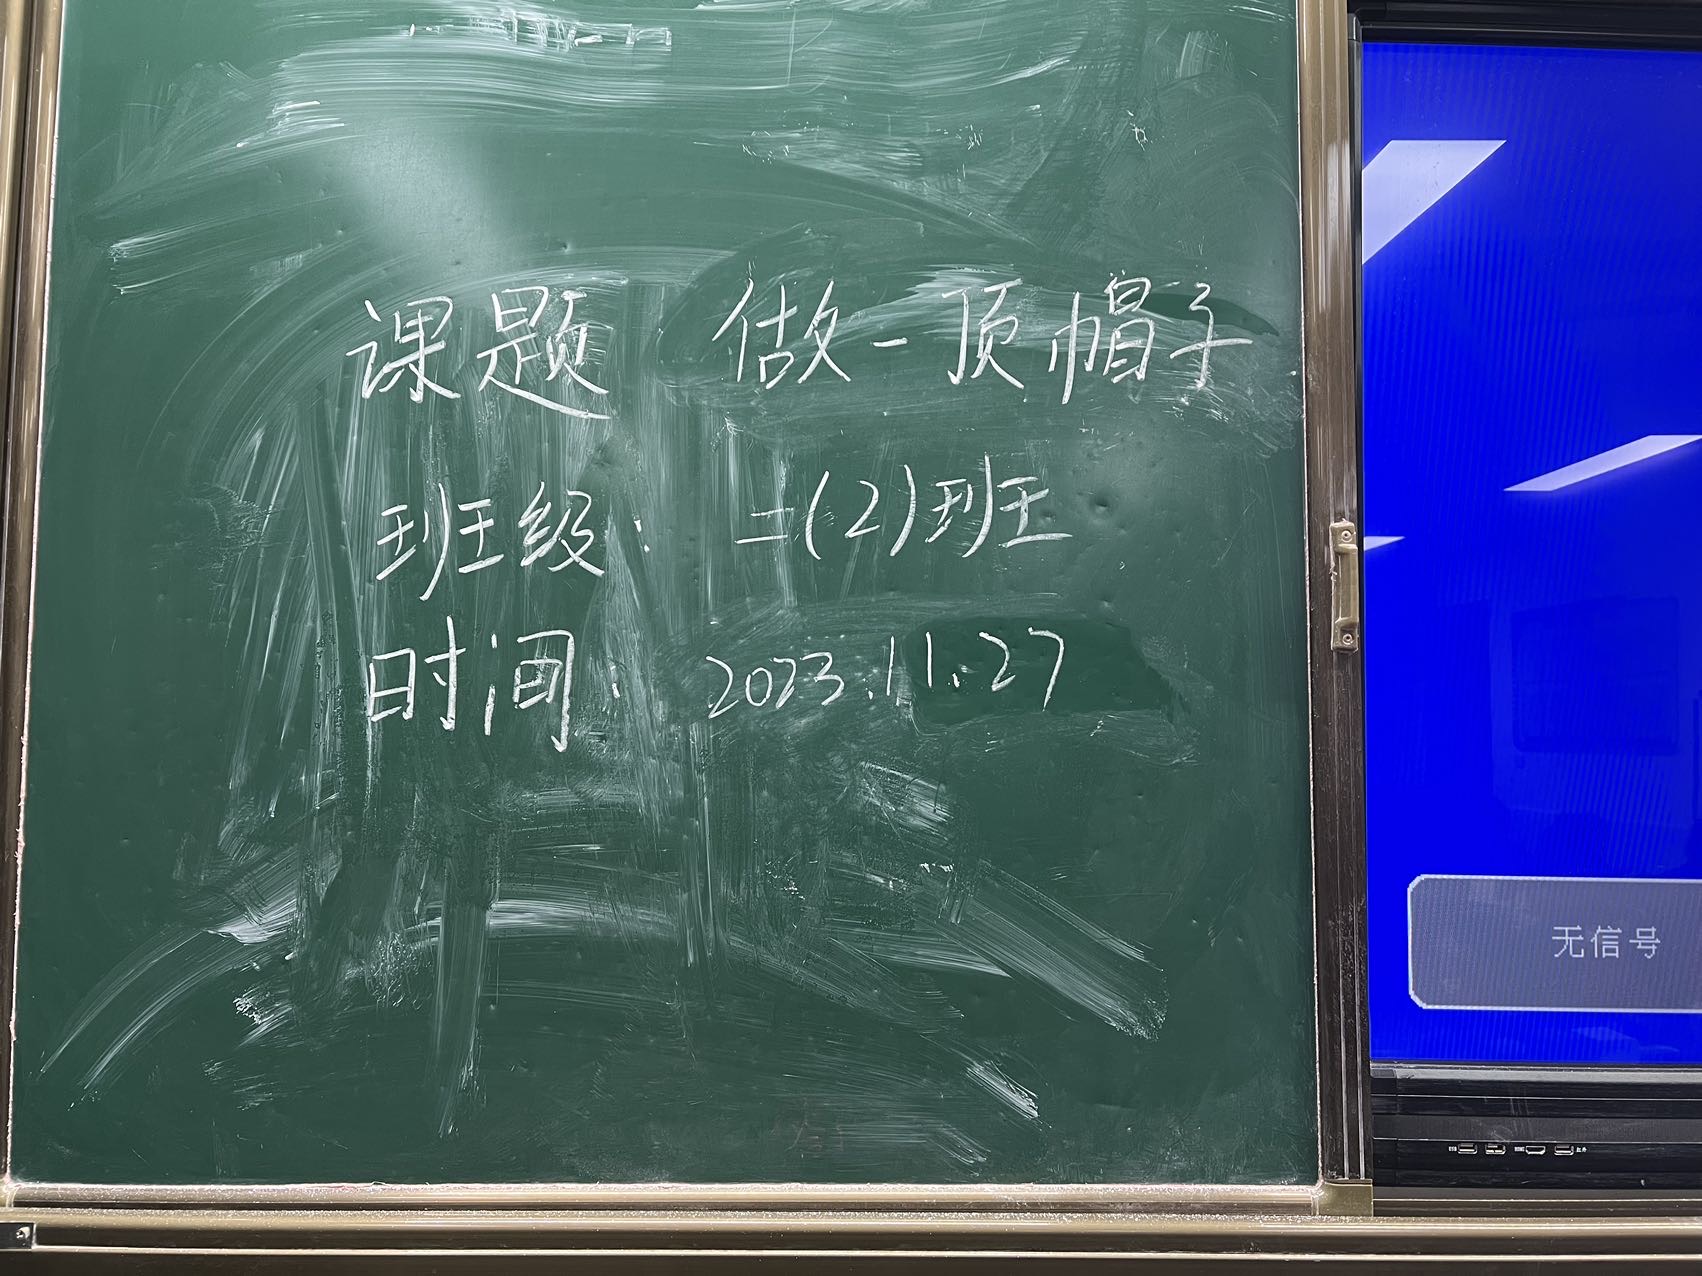 课题 做一顶帽子
班级: 二(2)班
时间: 2023.11.27
无信号